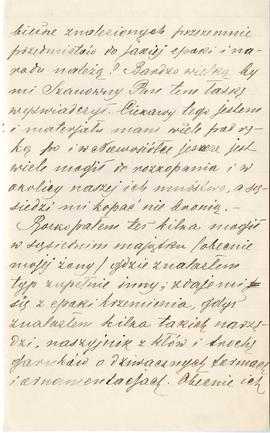 bicznie znalezionych przezemnie
przedmiotów do jakiej epoki i na-
rodu należą? Bardzo wielką by
mi Szanowny Pan tem łaskę
wyświadczył. Ciekawy tego jestem
i materjału mam wiele pod rę-
ką bo i w Nowosiółce jeszcze jest
wiele mogił do rozkopania i w
okolicy naszej ich mnóstwo, a są-
siedzi mi kopać nie bronią. —
Rozkopałem też kilka mogił
w sąsiednim majątku /obecnie
mojej żony/ gdzie znalazłem
typ zupełnie inny; zdaje mi
się z epoki krzemienia, gdyż
znalazłem kilka takich narzę-
dzi, naszyjnik z kłów i trochę
garnków o dziwacznych formach
i ornamentacjach. Obecnie ich